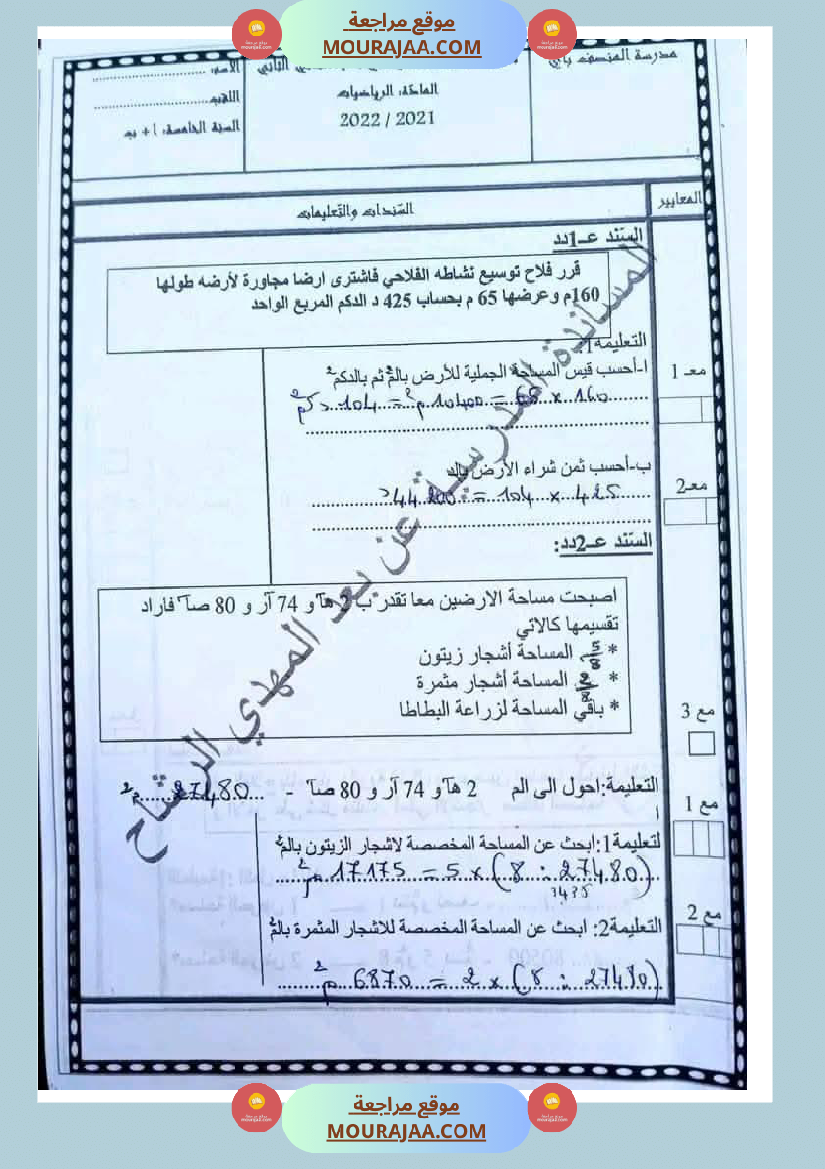 موقع مراجعة
MOURAJAA.COM
مدرسة المنصف باي
الثاني
المادة: الرياضيات
2022 / 2021
الاسم:
اللقب
السنة الخامسة: أ + ب
المعايير
السّندات والتّعليمات
السّند عـ1دد
قرر فلاح توسيع نشاطه الفلاحي فاشترى ارضا مجاورة لأرضه طولها
160م وعرضها 65 م بحساب 425 د الدكم المربع الواحد
التعليمة1:
معـ 1
ا-أحسب قيس المساحة الجملية للأرض بالم² ثم بالدكم²
160 x 65 = 10400 م² = 104 دكم²
معـ2
ب-أحسب ثمن شراء الأرض بالد
425 x 104 = 44200 د
السّند عـ2دد:
اصبحت مساحة الارضين معا تقدر ب 2 هآ و 74 آر و 80 صآ فاراد
تقسيمها كالاتي
* 5/8 المساحة أشجار زيتون
* 2/8 المساحة أشجار مثمرة
* باقي المساحة لزراعة البطاطا
مع 3
التعليمة:احول الى الم 2 هآ و 74 آر و 80 صآ - 27480 م²
مع 1
لتعليمة1:ابحث عن المساحة المخصصة لاشجار الزيتون بالم²
(27480 : 8) x 5 = 17175 م²
3435
مع 2
التعليمة2: ابحث عن المساحة المخصصة للاشجار المثمرة بالم²
(27480 : 8) x 2 = 6870 م²
المساندة المدرسية عن بعد المهدي الرشاح
موقع مراجعة
MOURAJAA.COM